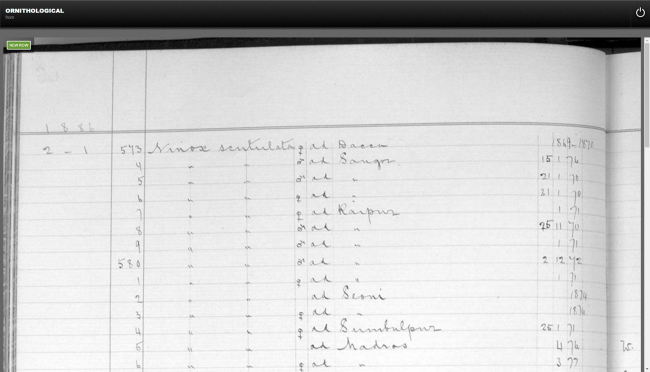 ORNITHOLOGICAL
NEW ROW
1886
2 - 1 573 Ninox scutulata ♀ ad Dacca 1869-1870
4 " " ♂ ad Saugor 15 1 70
5 " " ♂ ad " 21 1 70
6 " " ♀ ad " 31 1 70
7 " " ♀ ad Raipur 1 71
8 " " ♂ ad " 25 11 70
9 " " ♂ ad " 1 71
580 " " ♂ ad " 2 12 72
1 " " ♀ ad " 1 71
2 " " ad Seoni 1870
3 " " ♀ ad " 1870
4 " " ♀ ad Sumbulpur 25 1 71
5 " " ad Madras 4 74
6 " " ♀ ad " 3 77